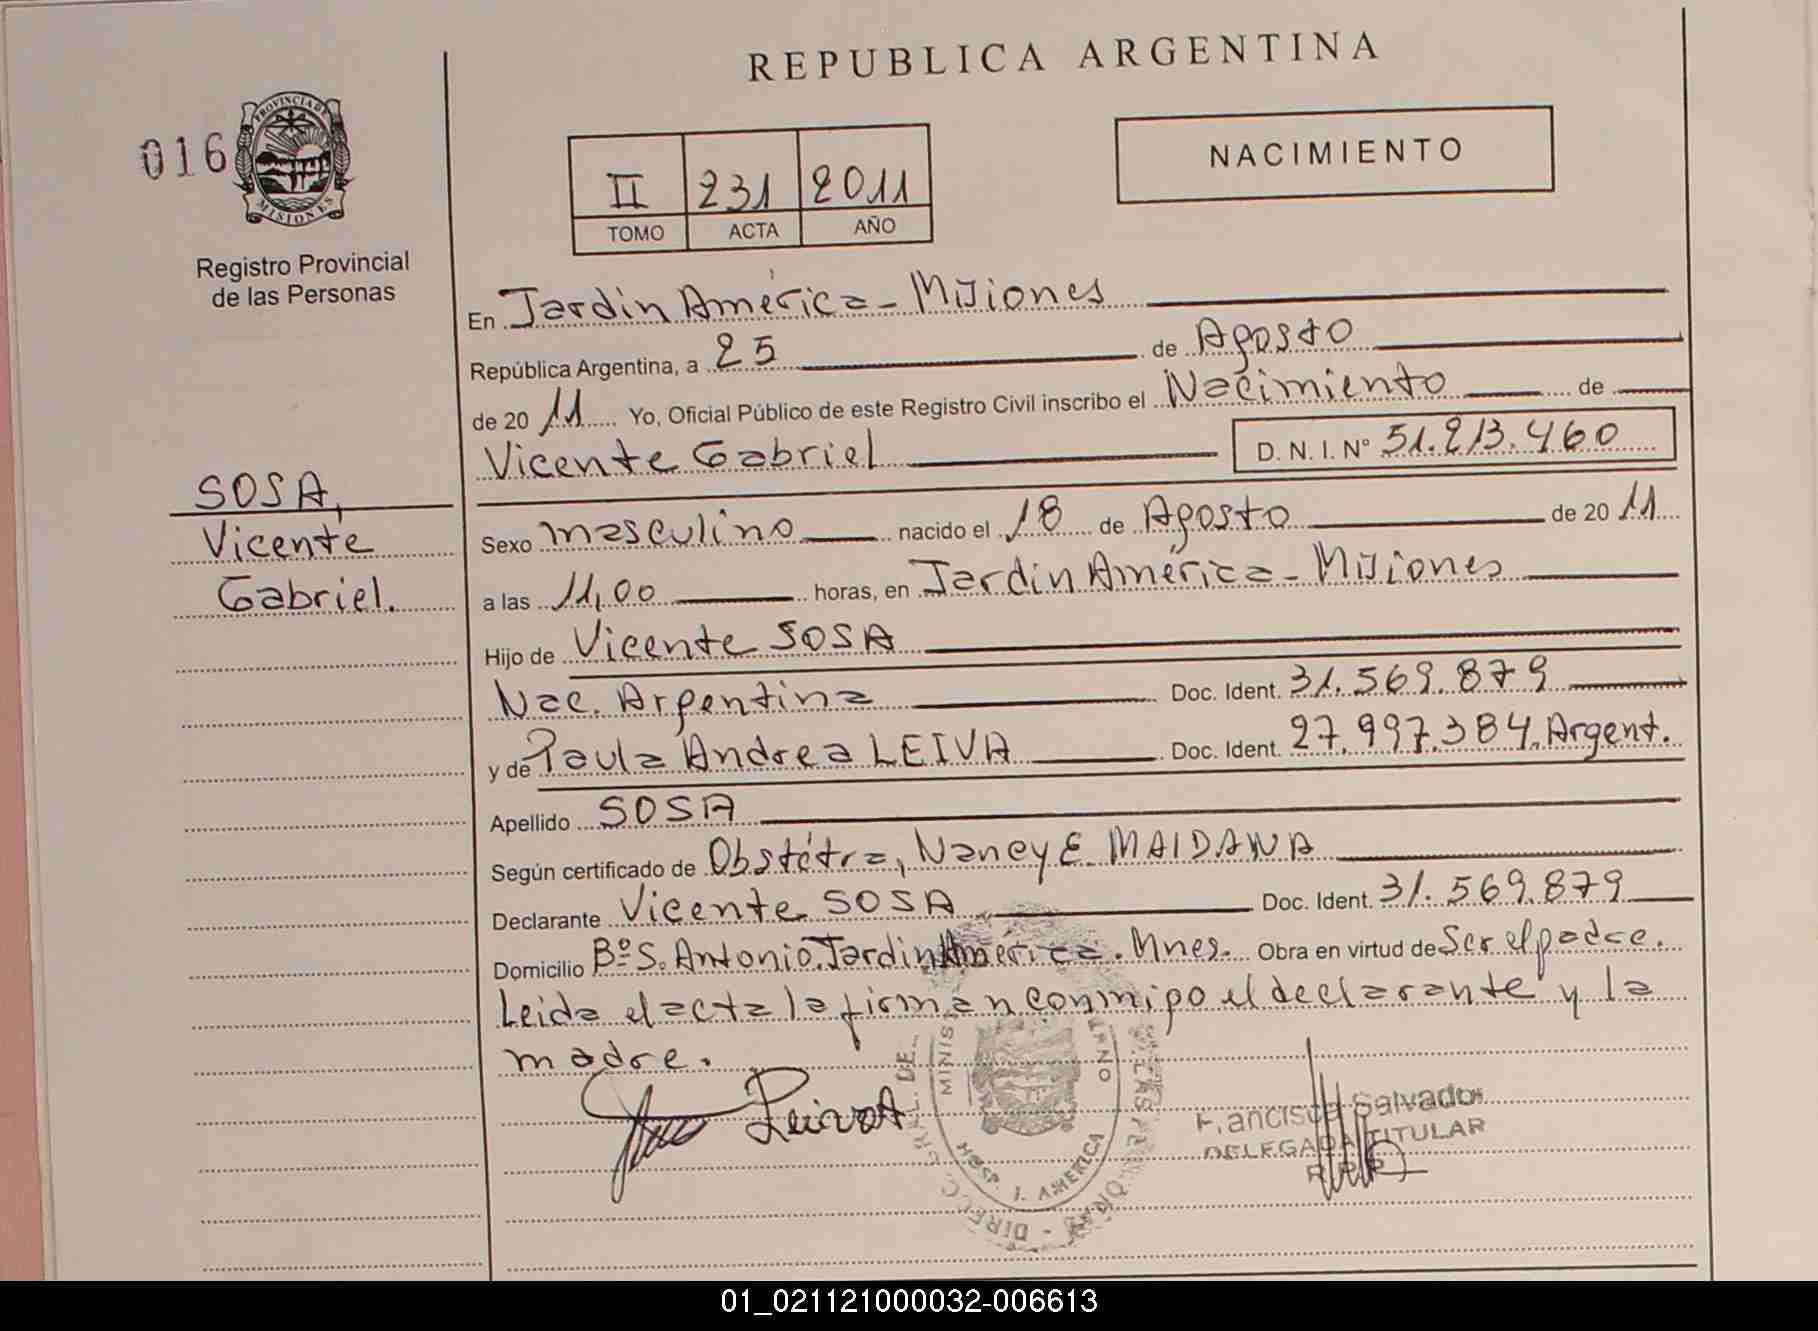 REPUBLICA ARGENTINA
016
PROVINCIA DE
MISIONES
Registro Provincial
de las Personas
II 231 2011
TOMO ACTA AÑO
NACIMIENTO
En Jardin América - Misiones
República Argentina, a 25 de Agosto
de 20 11 Yo, Oficial Público de este Registro Civil inscribo el Nacimiento de
Vicente Gabriel D. N. I. Nº 51.213.460
SOSA,
Vicente
Gabriel.
Sexo masculino nacido el 18 de Agosto de 20 11
a las 11,00 horas, en Jardin América - Misiones
Hijo de Vicente SOSA
Nac. Argentina Doc. Ident. 31.569.879
y de Paula Andrea LEIVA Doc. Ident. 27.997.384, Argent.
Apellido SOSA
Según certificado de Obstétra, Nancy E. MAIDANA
Declarante Vicente SOSA Doc. Ident. 31.569.879
Domicilio Bº S. Antonio. Jardin América. Mnes. Obra en virtud de Ser el padre.
Leida el acta la firman conmigo el declarante y la
madre.
Leiva A
HOSP. J. AMERICA
Salvador
DELEGADA TITULAR
R.P.P
01_021121000032-006613